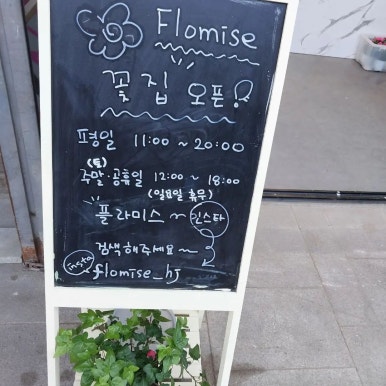 Flomise
꽃집 오픈!
평일 11:00 ~ 20:00
(토)
주말·공휴일 12:00 ~ 18:00
(일요일 휴무)
플라미스 ~ 인스타
검색해주세요~
insta flomise_hj